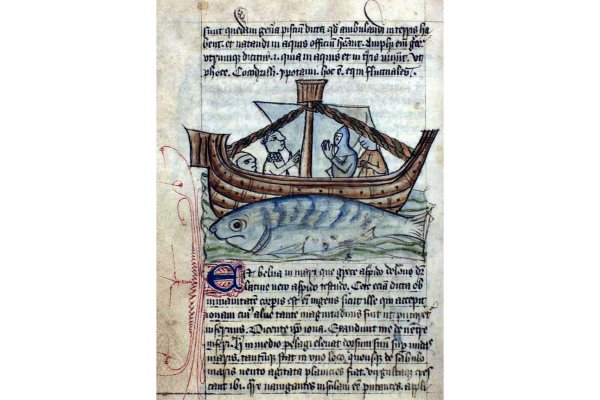 sunt quedam gen̄a pisciū dicta qd̄ ambulandi in terris ha
bent. et natandi in aquis officiū heant. Amphi em̄ gre
utrumque dicitur. i. quia in aquis et in t̄ris uiuūt. ut
phoce. Cocodrilli. ypotami. hoc ē. equi fluctuales.
Est belua in mari que grece aspido delone dr̄
latine uero aspido testudo. Cete etiā dicta ob
inmanitatem corpis est em̄ ingens sicut ille qui accepit
ionam cui⁹ alue tante magnitudinis fuit ut putaret
infernus. Dicente ip̄o iona. Exaudiuit me de uentre
inferi. in medio pelagi eleuat dorsum suū sup̄ undas
maris. stat in uno loco. quousque de sabulo
maris uento agitata planicies fiat. uirgultaque cres
cant ibi. Qr̄e nauigantes insulam eē putantes. appli